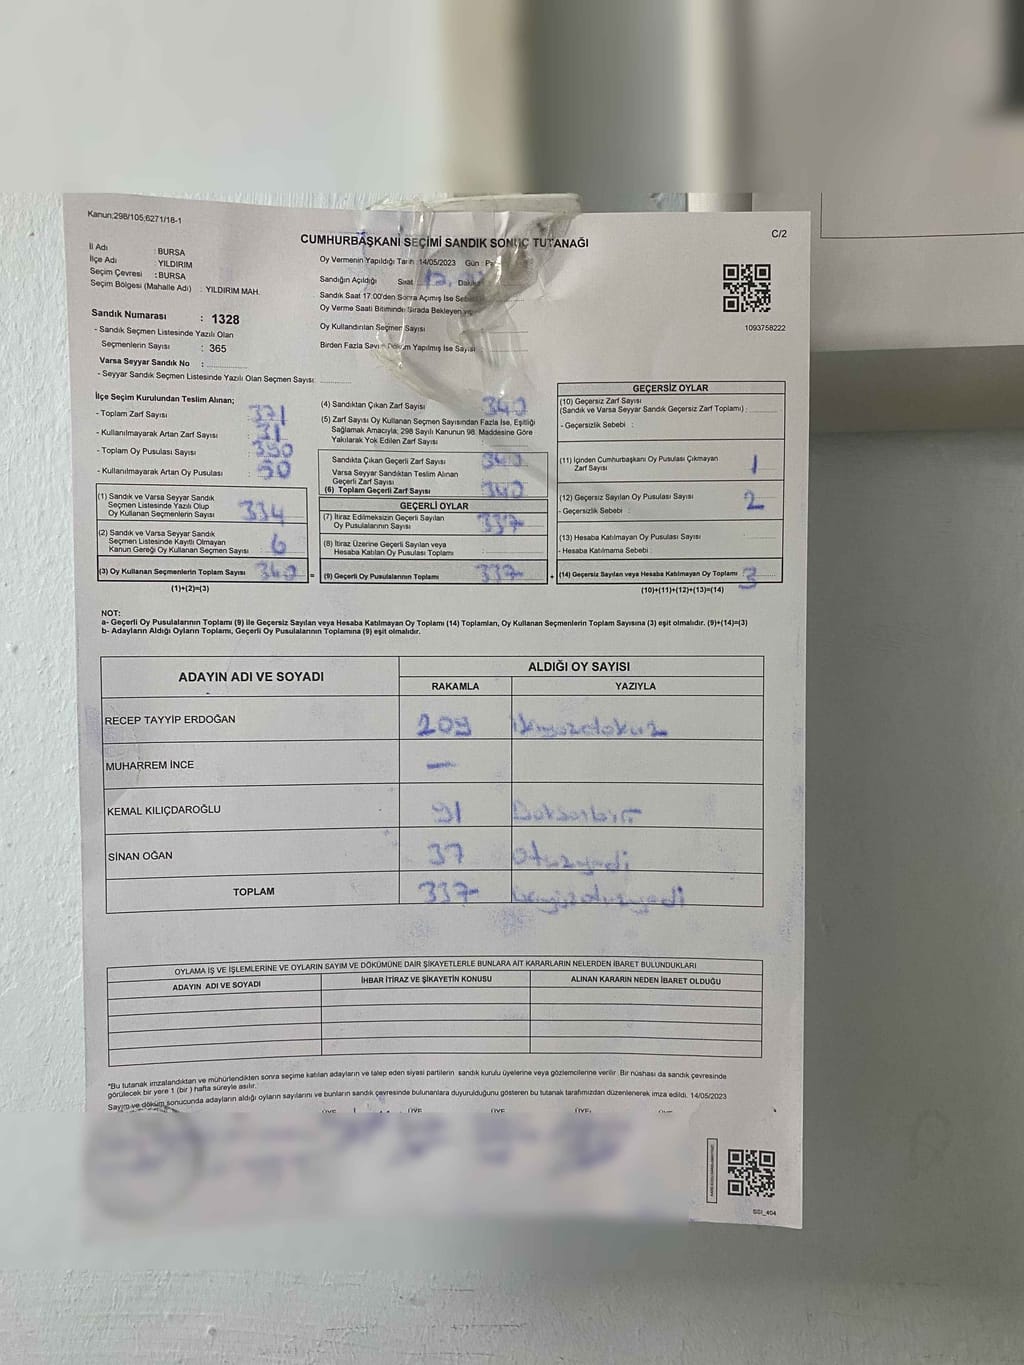 Kanun:298/105;6271/18-1
C/2
CUMHURBAŞKANI SEÇİMİ SANDIK SONUÇ TUTANAĞI
İl Adı : BURSA
İlçe Adı : YILDIRIM
Seçim Çevresi : BURSA
Seçim Bölgesi (Mahalle Adı) : YILDIRIM MAH.
Sandık Numarası : 1328
- Sandık Seçmen Listesinde Yazılı Olan
Seçmenlerin Sayısı : 365
Varsa Seyyar Sandık No :
- Seyyar Sandık Seçmen Listesinde Yazılı Olan Seçmen Sayısı:
Oy Vermenin Yapıldığı Tarih :14/05/2023 Gün :
Sandığın Açıldığı Saat Dakika
Sandık Saat 17.00'den Sonra Açımış İse
Oy Verme Saati Bitiminde Sırada Bekleyen ve
Oy Kullandırılan Seçmen Sayısı
Birden Fazla Sayım Döküm Yapılmış İse Sayısı
1093758222
İlçe Seçim Kurulundan Teslim Alınan;
- Toplam Zarf Sayısı : 371
- Kullanılmayarak Artan Zarf Sayısı : 31
- Toplam Oy Pusulası Sayısı : 390
- Kullanılmayarak Artan Oy Pusulası : 50
(1) Sandık ve Varsa Seyyar Sandık
Seçmen Listesinde Yazılı Olup
Oy Kullanan Seçmenlerin Sayısı 334
(2) Sandık ve Varsa Seyyar Sandık
Seçmen Listesinde Kayıtlı Olmayan
Kanun Gereği Oy Kullanan Seçmen Sayısı 6
(3) Oy Kullanan Seçmenlerin Toplam Sayısı 340 =
(1)+(2)=(3)
(4) Sandıktan Çıkan Zarf Sayısı 340
(5) Zarf Sayısı Oy Kullanan Seçmen Sayısından Fazla İse, Eşitliği
Sağlamak Amacıyla; 298 Sayılı Kanunun 98. Maddesine Göre
Yakılarak Yok Edilen Zarf Sayısı
Sandıkta Çıkan Geçerli Zarf Sayısı 340
Varsa Seyyar Sandıktan Teslim Alınan
Geçerli Zarf Sayısı
(6) Toplam Geçerli Zarf Sayısı 340
GEÇERLİ OYLAR
(7) İtiraz Edilmeksizin Geçerli Sayılan
Oy Pusulalarının Sayısı 337
(8) İtiraz Üzerine Geçerli Sayılan veya
Hesaba Katılan Oy Pusulası Toplamı
(9) Geçerli Oy Pusulalarının Toplamı 337 +
GEÇERSİZ OYLAR
(10) Geçersiz Zarf Sayısı
(Sandık ve Varsa Seyyar Sandık Geçersiz Zarf Toplamı) :
- Geçersizlik Sebebi :
(11) İçinden Cumhurbaşkanı Oy Pusulası Çıkmayan
Zarf Sayısı 1
(12) Geçersiz Sayılan Oy Pusulası Sayısı 2
- Geçersizlik Sebebi :
(13) Hesaba Katılmayan Oy Pusulası Sayısı
- Hesaba Katılmama Sebebi :
(14) Geçersiz Sayılan veya Hesaba Katılmayan Oy Toplamı 3
(10)+(11)+(12)+(13)=(14)
NOT:
a- Geçerli Oy Pusulalarının Toplamı (9) ile Geçersiz Sayılan veya Hesaba Katılmayan Oy Toplamı (14) Toplamları, Oy Kullanan Seçmenlerin Toplam Sayısına (3) eşit olmalıdır. (9)+(14)=(3)
b- Adayların Aldığı Oyların Toplamı, Geçerli Oy Pusulalarının Toplamına (9) eşit olmalıdır.
ADAYIN ADI VE SOYADI ALDIĞI OY SAYISI
RAKAMLA YAZIYLA
RECEP TAYYİP ERDOĞAN 209 ikiyüzdokuz
MUHARREM İNCE —
KEMAL KILIÇDAROĞLU 91 Doksanbir
SİNAN OĞAN 37 otuzyedi
TOPLAM 337
OYLAMA İŞ VE İŞLEMLERİNE VE OYLARIN SAYIM VE DÖKÜMÜNE DAİR ŞİKAYETLERLE BUNLARA AİT KARARLARIN NELERDEN İBARET BULUNDUKLARI
ADAYIN ADI VE SOYADI İHBAR İTİRAZ VE ŞİKAYETİN KONUSU ALINAN KARARIN NEDEN İBARET OLDUĞU
*Bu tutanak imzalandıktan ve mühürlendikten sonra seçime katılan adayların ve talep eden siyasi partilerin sandık kurulu üyelerine veya gözlemcilerine verilir. Bir nüshası da sandık çevresinde
görülecek bir yere 1 (bir ) hafta süreyle asılır.
Sayım ve döküm sonucunda adayların aldığı oyların sayılarını ve bunların sandık çevresinde bulunanlara duyurulduğunu gösteren bu tutanak tarafımızdan düzenlenerek imza edildi. 14/05/2023
SSI_404